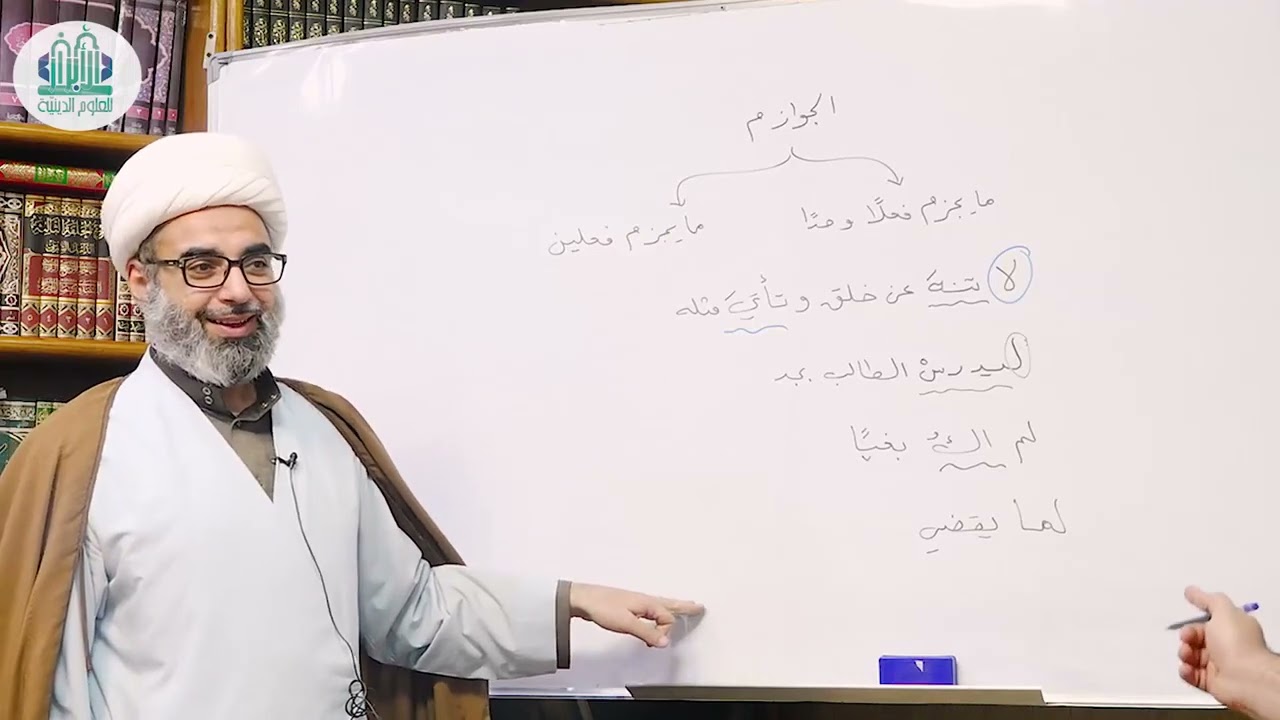 الأبرار
للعلوم الدينية
الجوازم
ما يجزم فعلًا وحدًا
ما يجزم فعلين
لا تنهَ عن خلق و تأتيَ مثله
ليدرسْ الطالب بجد
لم اكُ بغيًا
لما يقضي